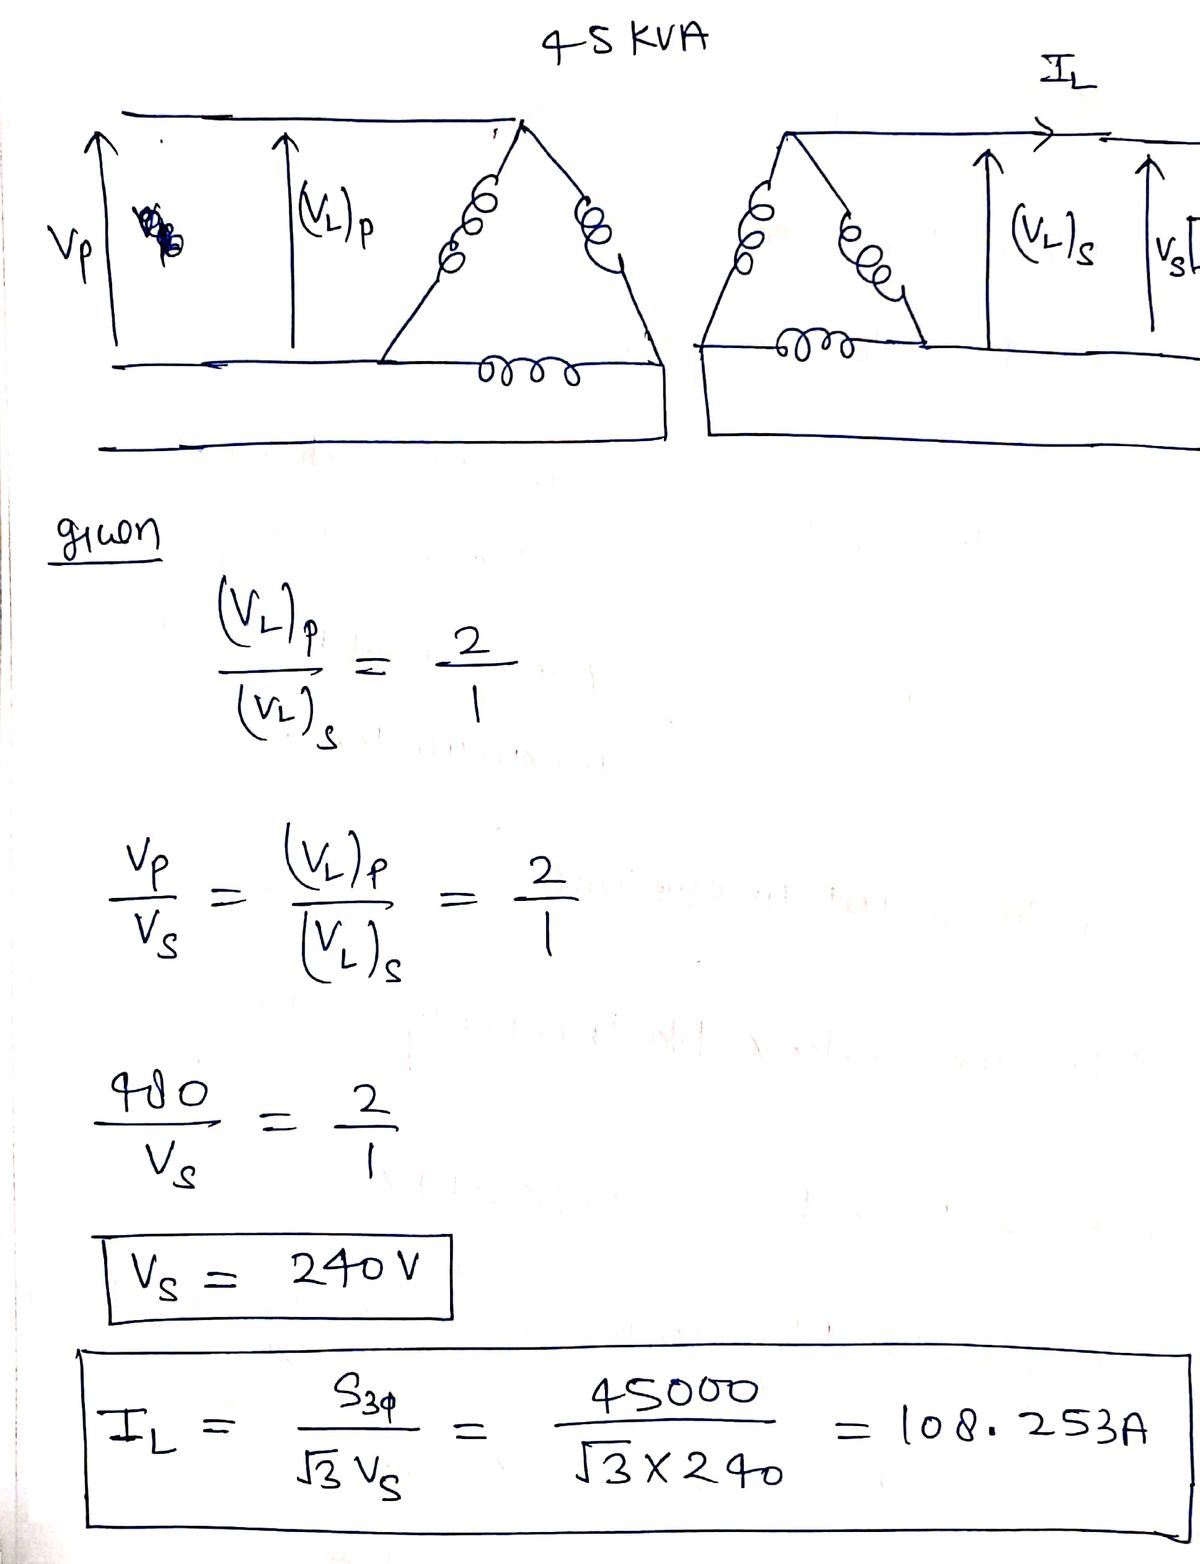 45 KVA
I_L
V_P (V_L)_P (V_L)_S V_S
given
(V_L)_P / (V_L)_S = 2 / 1
V_P / V_S = (V_L)_P / (V_L)_S = 2 / 1
480 / V_S = 2 / 1
V_S = 240 V
I_L = S_3φ / √3 V_S = 45000 / √3 × 240 = 108.253A